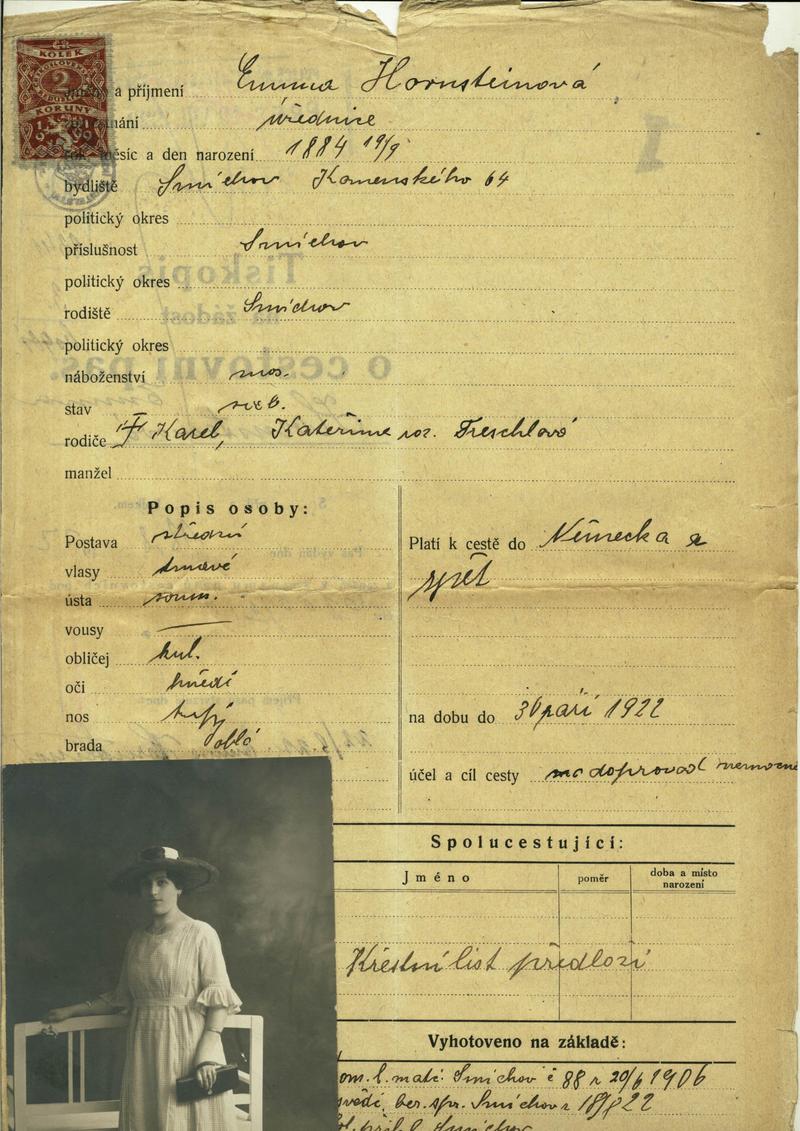 KOLEK
2
KORUNY
a příjmení Emma Hornsteinová
úřednice
měsíc a den narození 1884 19/9
bydliště Smíchov Komenského 64
politický okres
příslušnost Smíchov
politický okres
rodiště Smíchov
politický okres
náboženství mos.
stav svob.
rodiče † Karel, Kateřina roz. Treschlová
manžel
Tiskopis
na žádost
o cestovní pas.
Popis osoby:
Postava střední
vlasy tmavé
ústa soum.
vousy —
obličej kul.
oči hnědé
nos tupý
brada oblá
Platí k cestě do Německa a
zpět
na dobu do 30 září 1922
účel a cíl cesty doprovod nemocné
Spolucestující:
Jméno poměr doba a místo narození
Křestní list předloží
Vyhotoveno na základě:
dom. l. mag. Smíchov č 88 z 20/6 1906
ber. spr. Smíchov z 18/8 22
Smíchov